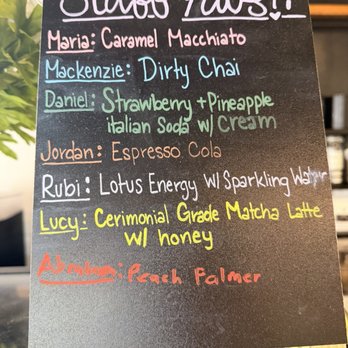 Staff Favs!!
Maria: Caramel Macchiato
Mackenzie: Dirty Chai
Daniel: Strawberry + Pineapple
italian Soda w/ Cream
Jordan: Espresso Cola
Rubi: Lotus Energy W/ Sparkling Water
Lucy: Cerimonial Grade Matcha Latte
w/ honey
Peach Palmer